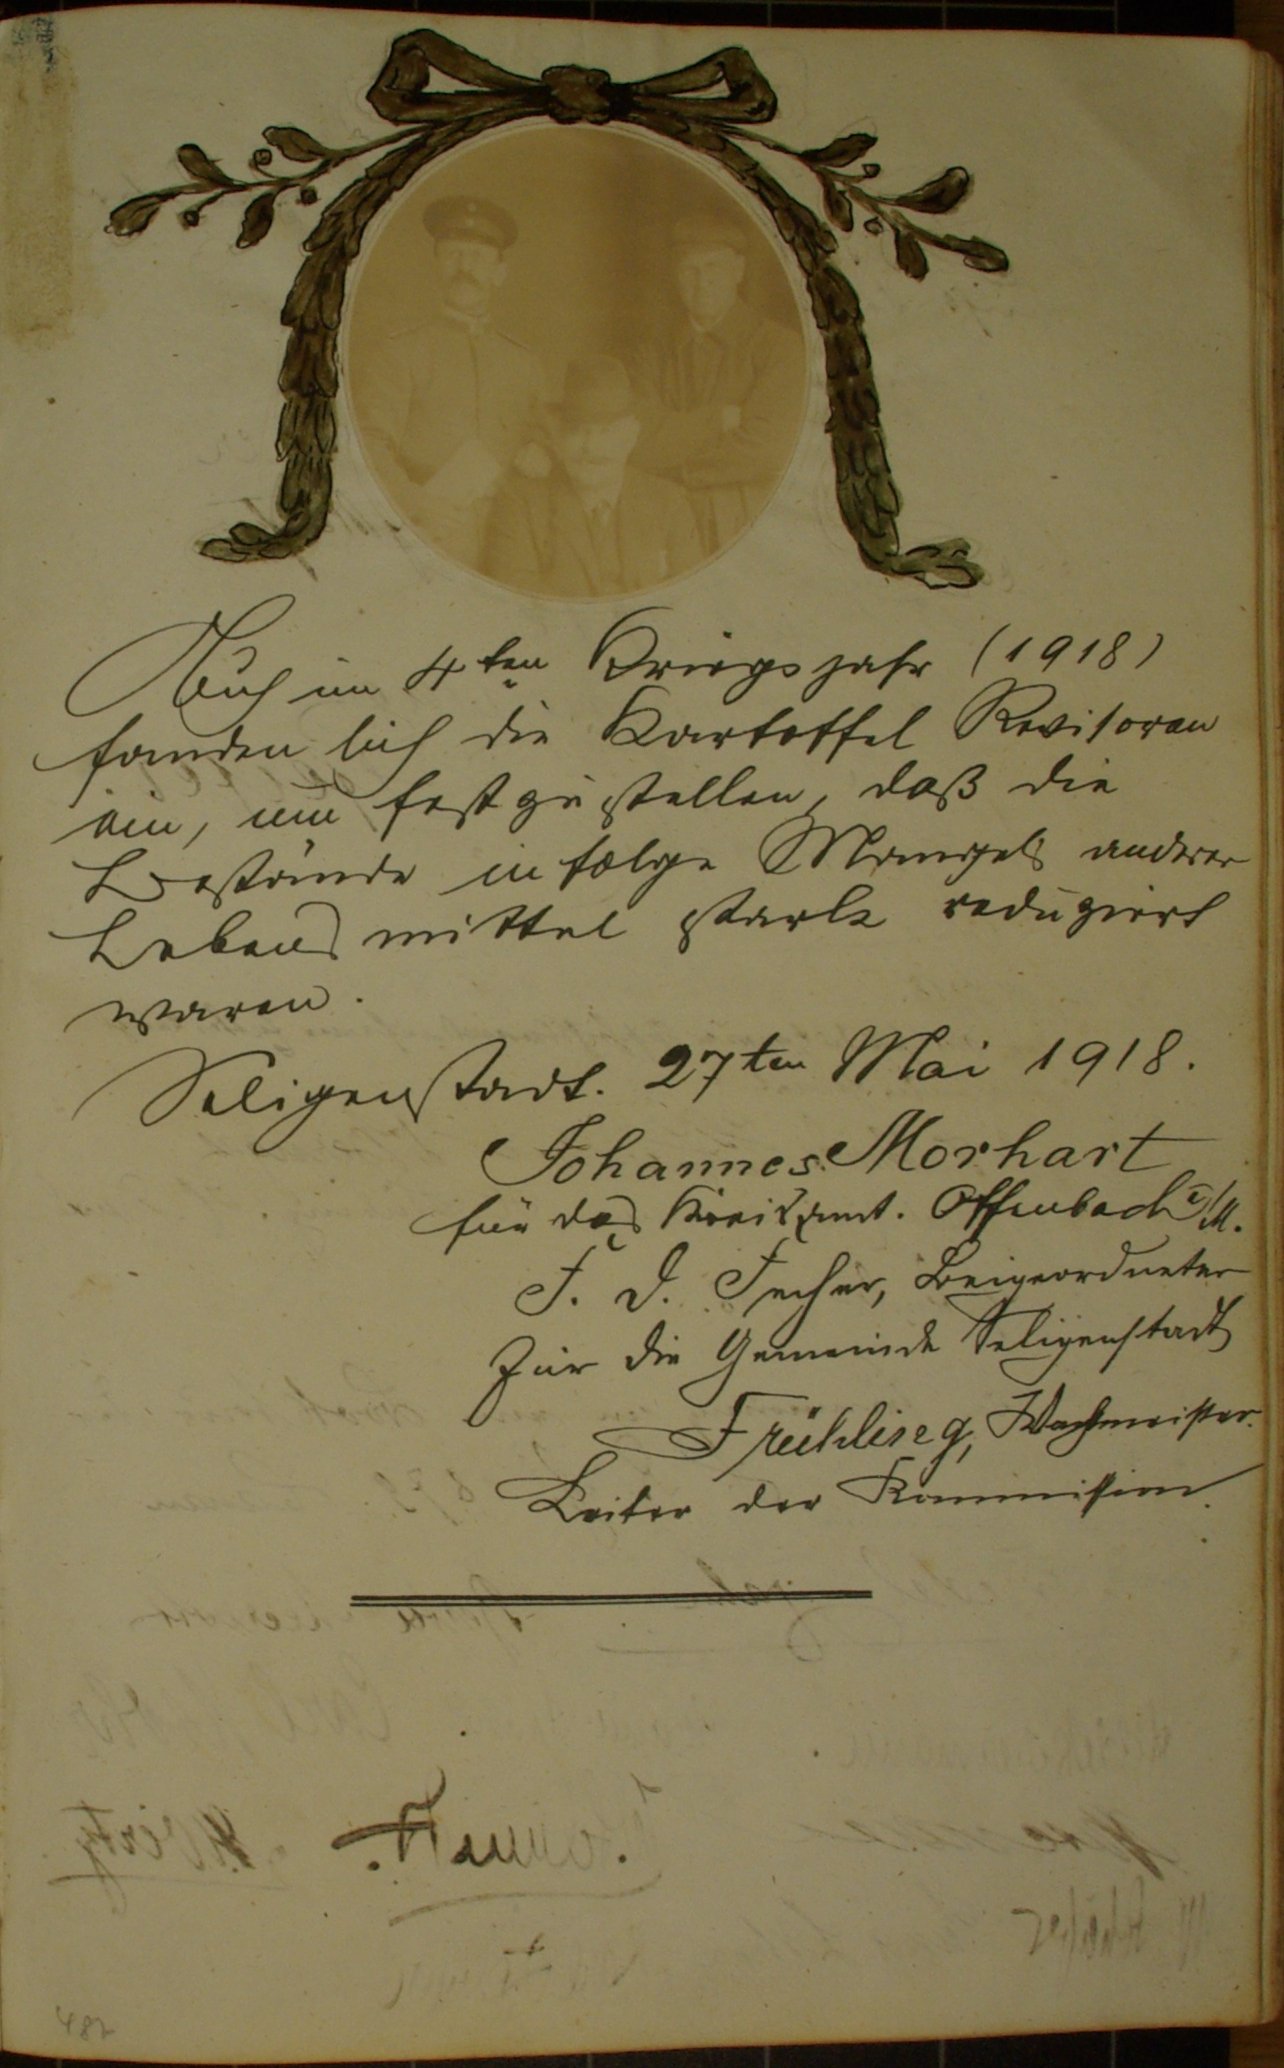 Auch im 4ten Kriegsjahr (1918)
fanden sich die Kartoffel Revisoren
ein, um festzustellen, daß die
Bestände infolge Mangels anderer
Lebensmittel stark reduziert
waren.
Seligenstadt. 27ten Mai 1918.
Johannes Morhart
für das Kreisamt. Offenbach a/M.
F. J. Beigeordneter
Für die Gemeinde Seligenstadt
Frühling, Wachtmeister.
Leiter der Kommission.
482